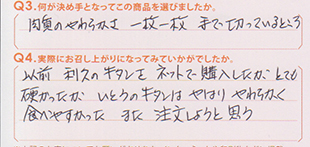 Q3.何が決め手となってこの商品を選びましたか。
肉質のやわらかさ 一枚一枚 手で切っているところ
Q4.実際にお召し上がりになってみていかがでしたか。
以前 利久のキタンを ネットで購入したが とても
硬かったが いとうのキタンは やはり やわらかく
食べやすかった また 注文しようと思う